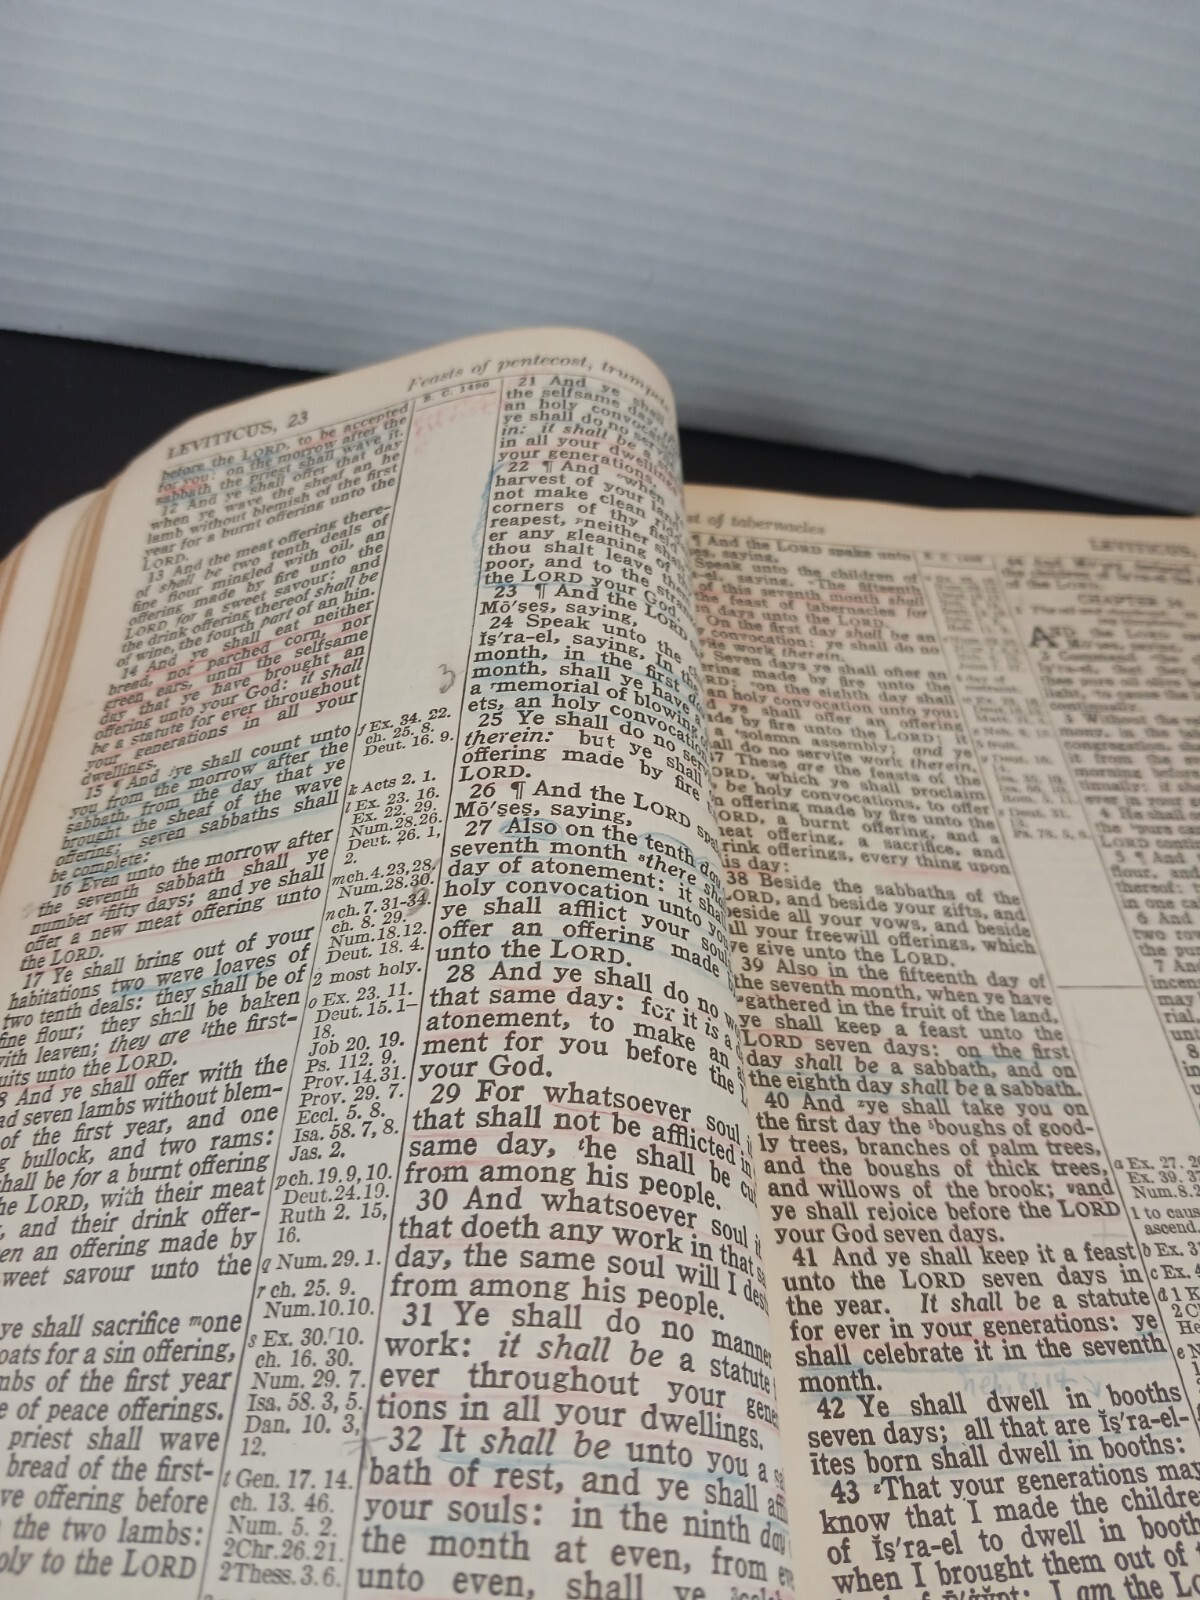 LEVITICUS, 23
Feasts of pentecost, trumpets
before the LORD, to be accepted
for you: on the morrow after the
sabbath the priest shall wave it.
12 And ye shall offer that day
when ye wave the sheaf an he
lamb without blemish of the first
year for a burnt offering unto the
LORD.
13 And the meat offering there-
of shall be two tenth deals of
fine flour mingled with oil, an
offering made by fire unto the
LORD for a sweet savour: and
the drink offering thereof shall be
of wine, the fourth part of an hin.
14 And ye shall eat neither
bread, nor parched corn, nor
green ears, until the selfsame
day that ye have brought an
offering unto your God: it shall
be a statute for ever throughout
your generations in all your
dwellings.
15 ¶ And ye shall count unto
you from the morrow after the
sabbath, from the day that ye
brought the sheaf of the wave
offering; seven sabbaths shall
be complete:
16 Even unto the morrow after
the seventh sabbath shall ye
number fifty days; and ye shall
offer a new meat offering unto
the LORD.
17 Ye shall bring out of your
habitations two wave loaves of
two tenth deals: they shall be of
fine flour; they shall be baken
with leaven; they are the first-
uits unto the LORD.
8 And ye shall offer with the
ad seven lambs without blem-
of the first year, and one
g bullock, and two rams:
hall be for a burnt offering
he LORD, with their meat
, and their drink offer-
en an offering made by
weet savour unto the
ye shall sacrifice one
oats for a sin offering,
mbs of the first year
e of peace offerings.
priest shall wave
bread of the first-
ve offering before
the two lambs:
oly to the LORD
B. C. 1490
j Ex. 34. 22.
ch. 25. 8.
Deut. 16. 9.
k Acts 2. 1.
l Ex. 23. 16.
Ex. 22. 29.
Num.28.26.
Deut. 26. 1,
2.
m ch.4.23,28.
Num.28.30.
n ch. 7.31-34.
ch. 8. 29.
Num.18.12.
Deut. 18. 4.
2 most holy.
o Ex. 23. 11.
Deut. 15. 1-
18.
Job 20. 19.
Ps. 112. 9.
Prov.14.31.
Prov. 29. 7.
Eccl. 5. 8.
Isa. 58. 7, 8.
Jas. 2.
p ch.19.9,10.
Deut.24.19.
Ruth 2. 15,
16.
q Num. 29. 1.
r ch. 25. 9.
Num.10.10.
s Ex. 30. 10.
ch. 16. 30.
Num. 29. 7.
Isa. 58. 3, 5.
Dan. 10. 3,
12.
t Gen. 17. 14.
ch. 13. 46.
Num. 5. 2.
2Chr.26.21.
2Thess.3.6.
3
21 And ye shall
the selfsame day,
an holy convocation
ye shall do no
in: it shall be a
in all your dwellings
your generations.
22 ¶ And when
harvest of your land
not make clean
corners of thy field
reapest, neither
er any gleaning
thou shalt leave
poor, and to the
the LORD your God
23 ¶ And the LORD
Mō'ṣeṣ, saying,
24 Speak unto the
Ĭṣ'ra-el, saying, In the
month, in the first
month, shall ye have
a memorial of blowing
ets, an holy convocation
25 Ye shall do no serv
therein: but ye shall
offering made by fire
LORD.
26 ¶ And the LORD spa
Mō'ṣeṣ, saying,
27 Also on the tenth day
seventh month there sha
day of atonement: it shal
holy convocation unto yo
ye shall afflict your soul
offer an offering made
unto the LORD.
28 And ye shall do no w
that same day: for it is a
atonement, to make an a
ment for you before the L
your God.
29 For whatsoever soul i
that shall not be afflicted in
same day, he shall be cu
from among his people.
30 And whatsoever soul it
that doeth any work in that sa
day, the same soul will I dest
from among his people.
31 Ye shall do no manner
work: it shall be a statute
ever throughout your gene
tions in all your dwellings.
32 It shall be unto you a sa
bath of rest, and ye shall affl
your souls: in the ninth day
the month at even, from ev
unto even, shall ye
st of tabernacles
¶ And the LORD spake unto
es, saying,
Speak unto the children of
-el, saying, The fifteenth
of this seventh month shall
the feast of tabernacles for
n days unto the LORD.
On the first day shall be an
y convocation: ye shall do no
vile work therein.
Seven days ye shall offer an
ering made by fire unto the
RD: on the eighth day shall
an holy convocation unto you;
d ye shall offer an offering
ade by fire unto the LORD: it
a solemn assembly; and ye
all do no servile work therein.
37 These are the feasts of the
ORD, which ye shall proclaim
be holy convocations, to offer
n offering made by fire unto the
ORD, a burnt offering, and a
neat offering, a sacrifice, and
rink offerings, every thing upon
is day:
38 Beside the sabbaths of the
LORD, and beside your gifts, and
beside all your vows, and beside
all your freewill offerings, which
ye give unto the LORD.
39 Also in the fifteenth day of
the seventh month, when ye have
gathered in the fruit of the land,
ye shall keep a feast unto the
LORD seven days: on the first
day shall be a sabbath, and on
the eighth day shall be a sabbath.
40 And ye shall take you on
the first day the boughs of good-
ly trees, branches of palm trees,
and the boughs of thick trees,
and willows of the brook; and
ye shall rejoice before the LORD
your God seven days.
41 And ye shall keep it a feast
unto the LORD seven days in
the year. It shall be a statute
for ever in your generations: ye
shall celebrate it in the seventh
month.
42 Ye shall dwell in booths
seven days; all that are Ĭṣ'ra-el-
ītes born shall dwell in booths:
43 That your generations may
know that I made the childre
of Ĭṣ'ra-el to dwell in booth
when I brought them out of
I am the Lo
a Ex. 27. 20
Ex. 39. 37
Num.8.2
1 to caus
ascend.
b Ex. 3
c Ex. 4
d 1 K
2 C
He
e N
LEVITICUS,
CHAPTER 24
AND the LORD